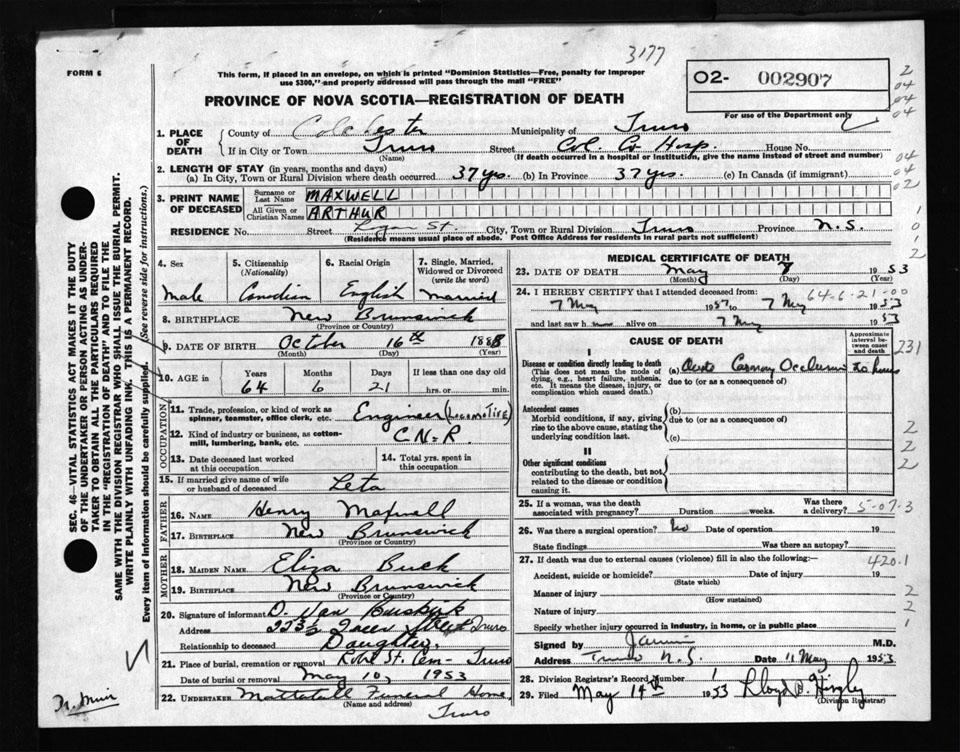 3177
FORM 6
This form, if placed in an envelope, on which is printed "Dominion Statistics—Free, penalty for improper
use $300," and properly addressed will pass through the mail "FREE"
02- 002907
PROVINCE OF NOVA SCOTIA—REGISTRATION OF DEATH
For use of the Department only
1. PLACE OF DEATH
County of Colchester Municipality of Truro
If in City or Town Truro Street Col. Co. Hosp. House No.
(Name) (If death occurred in a hospital or institution, give the name instead of street and number)
2. LENGTH OF STAY (in years, months and days)
(a) In City, Town or Rural Division where death occurred 37 yrs. (b) In Province 37 yrs. (c) In Canada (if immigrant)
3. PRINT NAME OF DECEASED
Surname or Last Name MAXWELL
All Given or Christian Names ARTHUR
RESIDENCE No. Street Logan St. City, Town or Rural Division Truro Province N.S.
(Residence means usual place of abode. Post Office Address for residents in rural parts not sufficient)
4. Sex Male
5. Citizenship (Nationality) Canadian
6. Racial Origin English
7. Single, Married, Widowed or Divorced (write the word) Married
8. BIRTHPLACE New Brunswick
(Province or Country)
9. DATE OF BIRTH October 16th 1888
(Month) (Day) (Year)
10. AGE in Years Months Days If less than one day old
64 6 21 hrs. or min.
OCCUPATION
11. Trade, profession, or kind of work as spinner, teamster, office clerk, etc. Engineer (LOCOMOTIVE)
12. Kind of industry or business, as cotton-mill, lumbering, bank, etc. C.N.R.
13. Date deceased last worked at this occupation
14. Total yrs. spent in this occupation
15. If married give name of wife or husband of deceased Leta
FATHER
16. NAME Henry Maxwell
17. BIRTHPLACE New Brunswick
(Province or Country)
MOTHER
18. MAIDEN NAME Eliza Buck
19. BIRTHPLACE New Brunswick
(Province or Country)
20. Signature of informant D. Van Buskirk
Address 223½ Queen Street Truro
Relationship to deceased Daughter
21. Place of burial, cremation or removal Robie St. Cem- Truro
Date of burial or removal May 10, 1953
22. UNDERTAKER Mattatall Funeral Home,
(Name and address)
Truro
MEDICAL CERTIFICATE OF DEATH
23. DATE OF DEATH May 7 1953
(Month) (Day) (Year)
24. I HEREBY CERTIFY that I attended deceased from: 64-6-21-00
7 May to 7 May 1953
and last saw h alive on 7 May 1953
CAUSE OF DEATH
Approximate interval between onset and death
231
I
Disease or condition directly leading to death
(This does not mean the mode of dying, e.g., heart failure, asthenia, etc. It means the disease, injury, or complication which caused death.)
(a) Acute Coronary Occlusion hours
due to (or as a consequence of)
Antecedent causes
Morbid conditions, if any, giving rise to the above cause, stating the underlying condition last.
(b)
due to (or as a consequence of)
(c)
II
Other significant conditions
contributing to the death, but not related to the disease or condition causing it.
25. If a woman, was the death associated with pregnancy? Duration weeks. Was there a delivery? 5-07-3
26. Was there a surgical operation? No Date of operation 19
State findings Was there an autopsy?
27. If death was due to external causes (violence) fill in also the following: 420.1
Accident, suicide or homicide? Date of injury 19
(State which)
Manner of injury
(How sustained)
Nature of injury
Specify whether injury occurred in industry, in home, or in public place
Signed by M.D.
Address Truro N.S. Date 11 May 1953
28. Division Registrar's Record Number 1
29. Filed May 14th 1953 Lloyd B. Higby
(Division Registrar)
SEC. 46—VITAL STATISTICS ACT MAKES IT THE DUTY
OF THE UNDERTAKER OR PERSON ACTING AS UNDER-
TAKER TO OBTAIN ALL THE PARTICULARS REQUIRED
IN THE "REGISTRATION OF DEATH" AND TO FILE THE
SAME WITH THE DIVISION REGISTRAR WHO SHALL ISSUE THE BURIAL PERMIT.
WRITE PLAINLY WITH UNFADING INK. THIS IS A PERMANENT RECORD.
Every item of information should be carefully supplied. (See reverse side for instructions.)
2
04
04
04
04
04
02
1
0
1
2
2
2
2
2
2
1